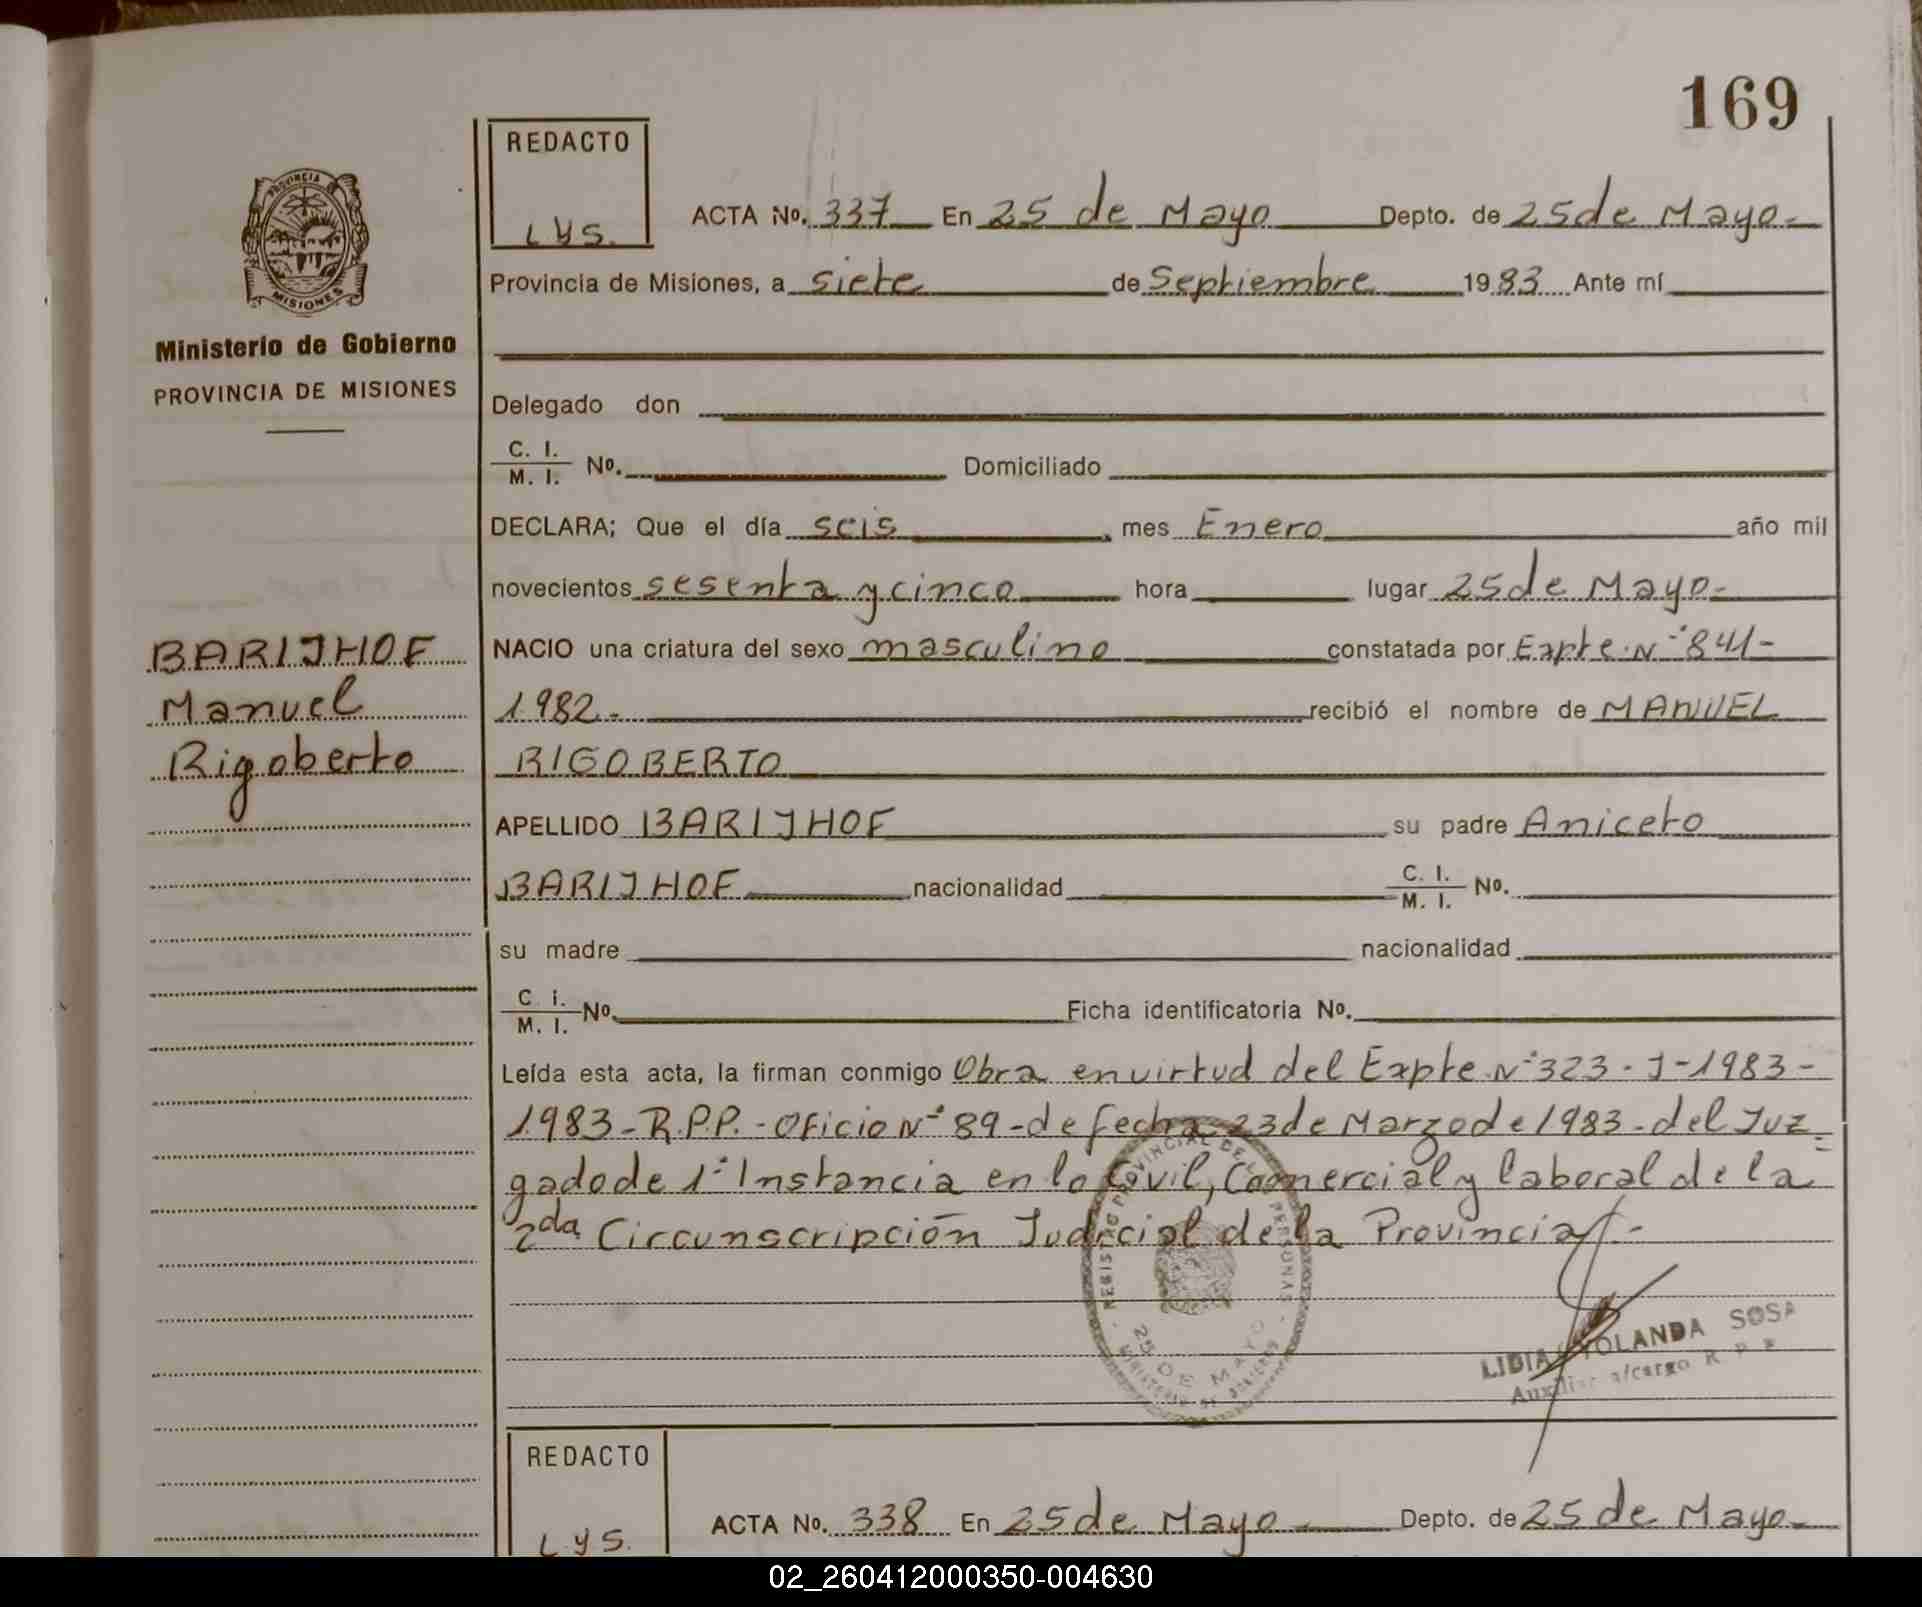 169
REDACTO
LYS.
PROVINCIA
MISIONES
Ministerio de Gobierno
PROVINCIA DE MISIONES
ACTA No. 337 En 25 de Mayo Depto. de 25 de Mayo-
Provincia de Misiones, a siete de Septiembre 1983 Ante mí
Delegado don
C. I.
M. I. No. Domiciliado
DECLARA; Que el día seis, mes Enero año mil
novecientos sesenta y cinco hora lugar 25 de Mayo-
BARIJHOF
Manuel
Rigoberto
NACIO una criatura del sexo masculino constatada por Expte. N° 841-
1982.- recibió el nombre de MANUEL
RIGOBERTO
APELLIDO BARIJHOF su padre Aniceto
BARIJHOF nacionalidad C. I.
M. I. No.
su madre nacionalidad
C i.
M. I. No. Ficha identificatoria No.
Leída esta acta, la firman conmigo Obra en virtud del Expte. N° 323 - J - 1983 -
1983 - R.P.P. - Oficio N° 89 - de fecha 23 de Marzo de 1983 - del Juz=
gado de 1° Instancia en lo Civil, Comercial y laboral de la
2da Circunscripción Judicial de la Provincia.-
REGISTRO PROVINCIAL DE LAS PERSONAS
25 DE MAYO
MINISTERIO DE GOBIERNO
LIDIA YOLANDA SOSA
Auxiliar a/cargo R P P
REDACTO
LYS.
ACTA No. 338 En 25 de Mayo - Depto. de 25 de Mayo-
02_260412000350-004630